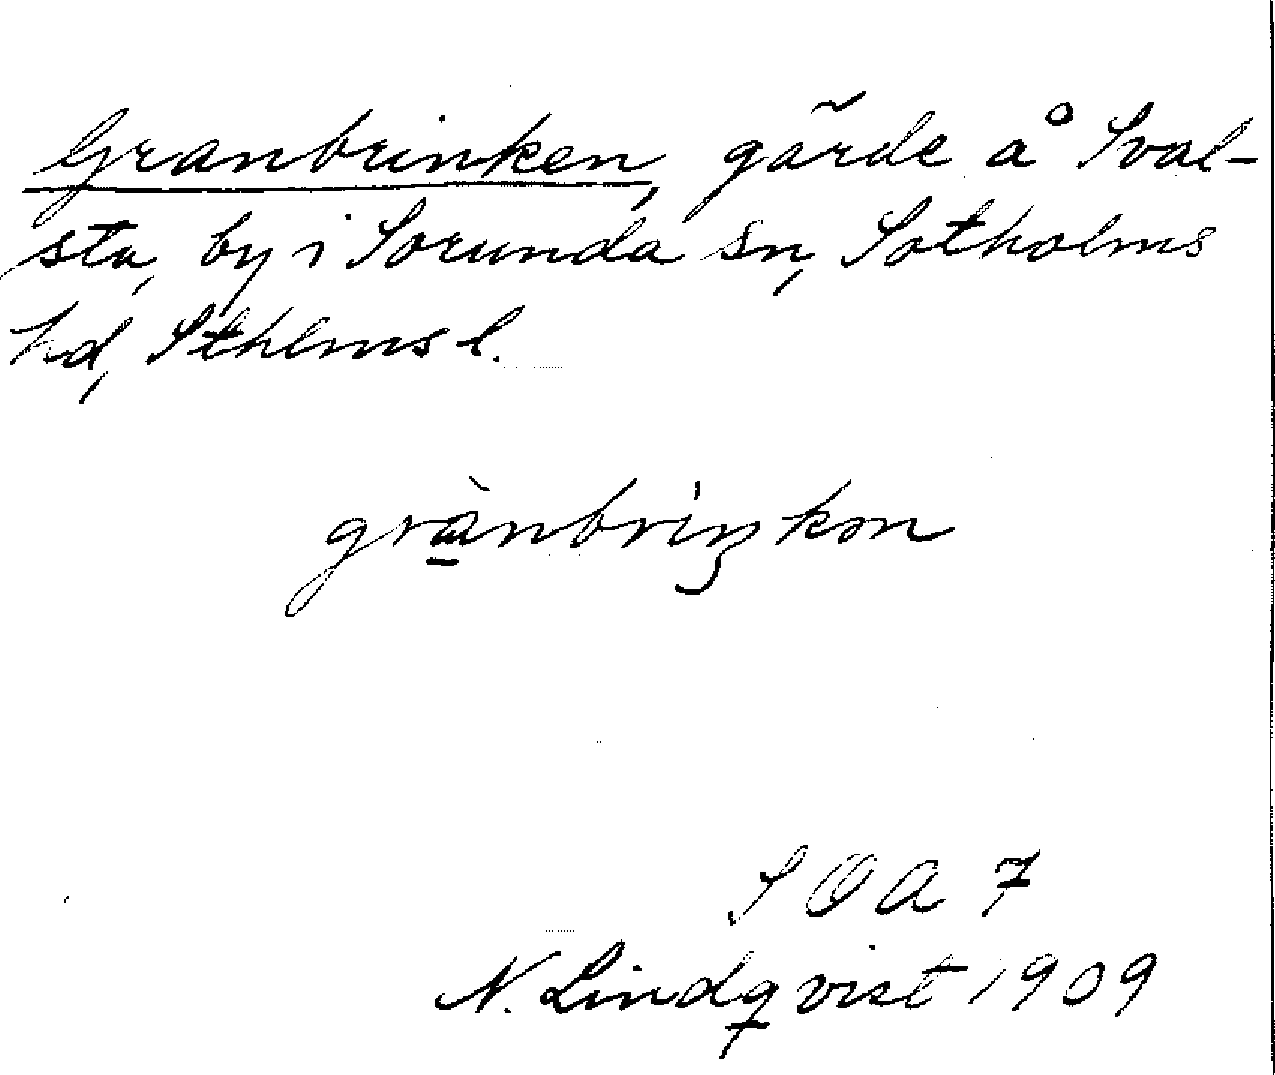 Granbrinken, gärde å Sval-
sta, by i Sorunda sn, Sotholms
hd, Sthlms l.
grànbriŋkən
S O A 7
N. Lindqvist 1909